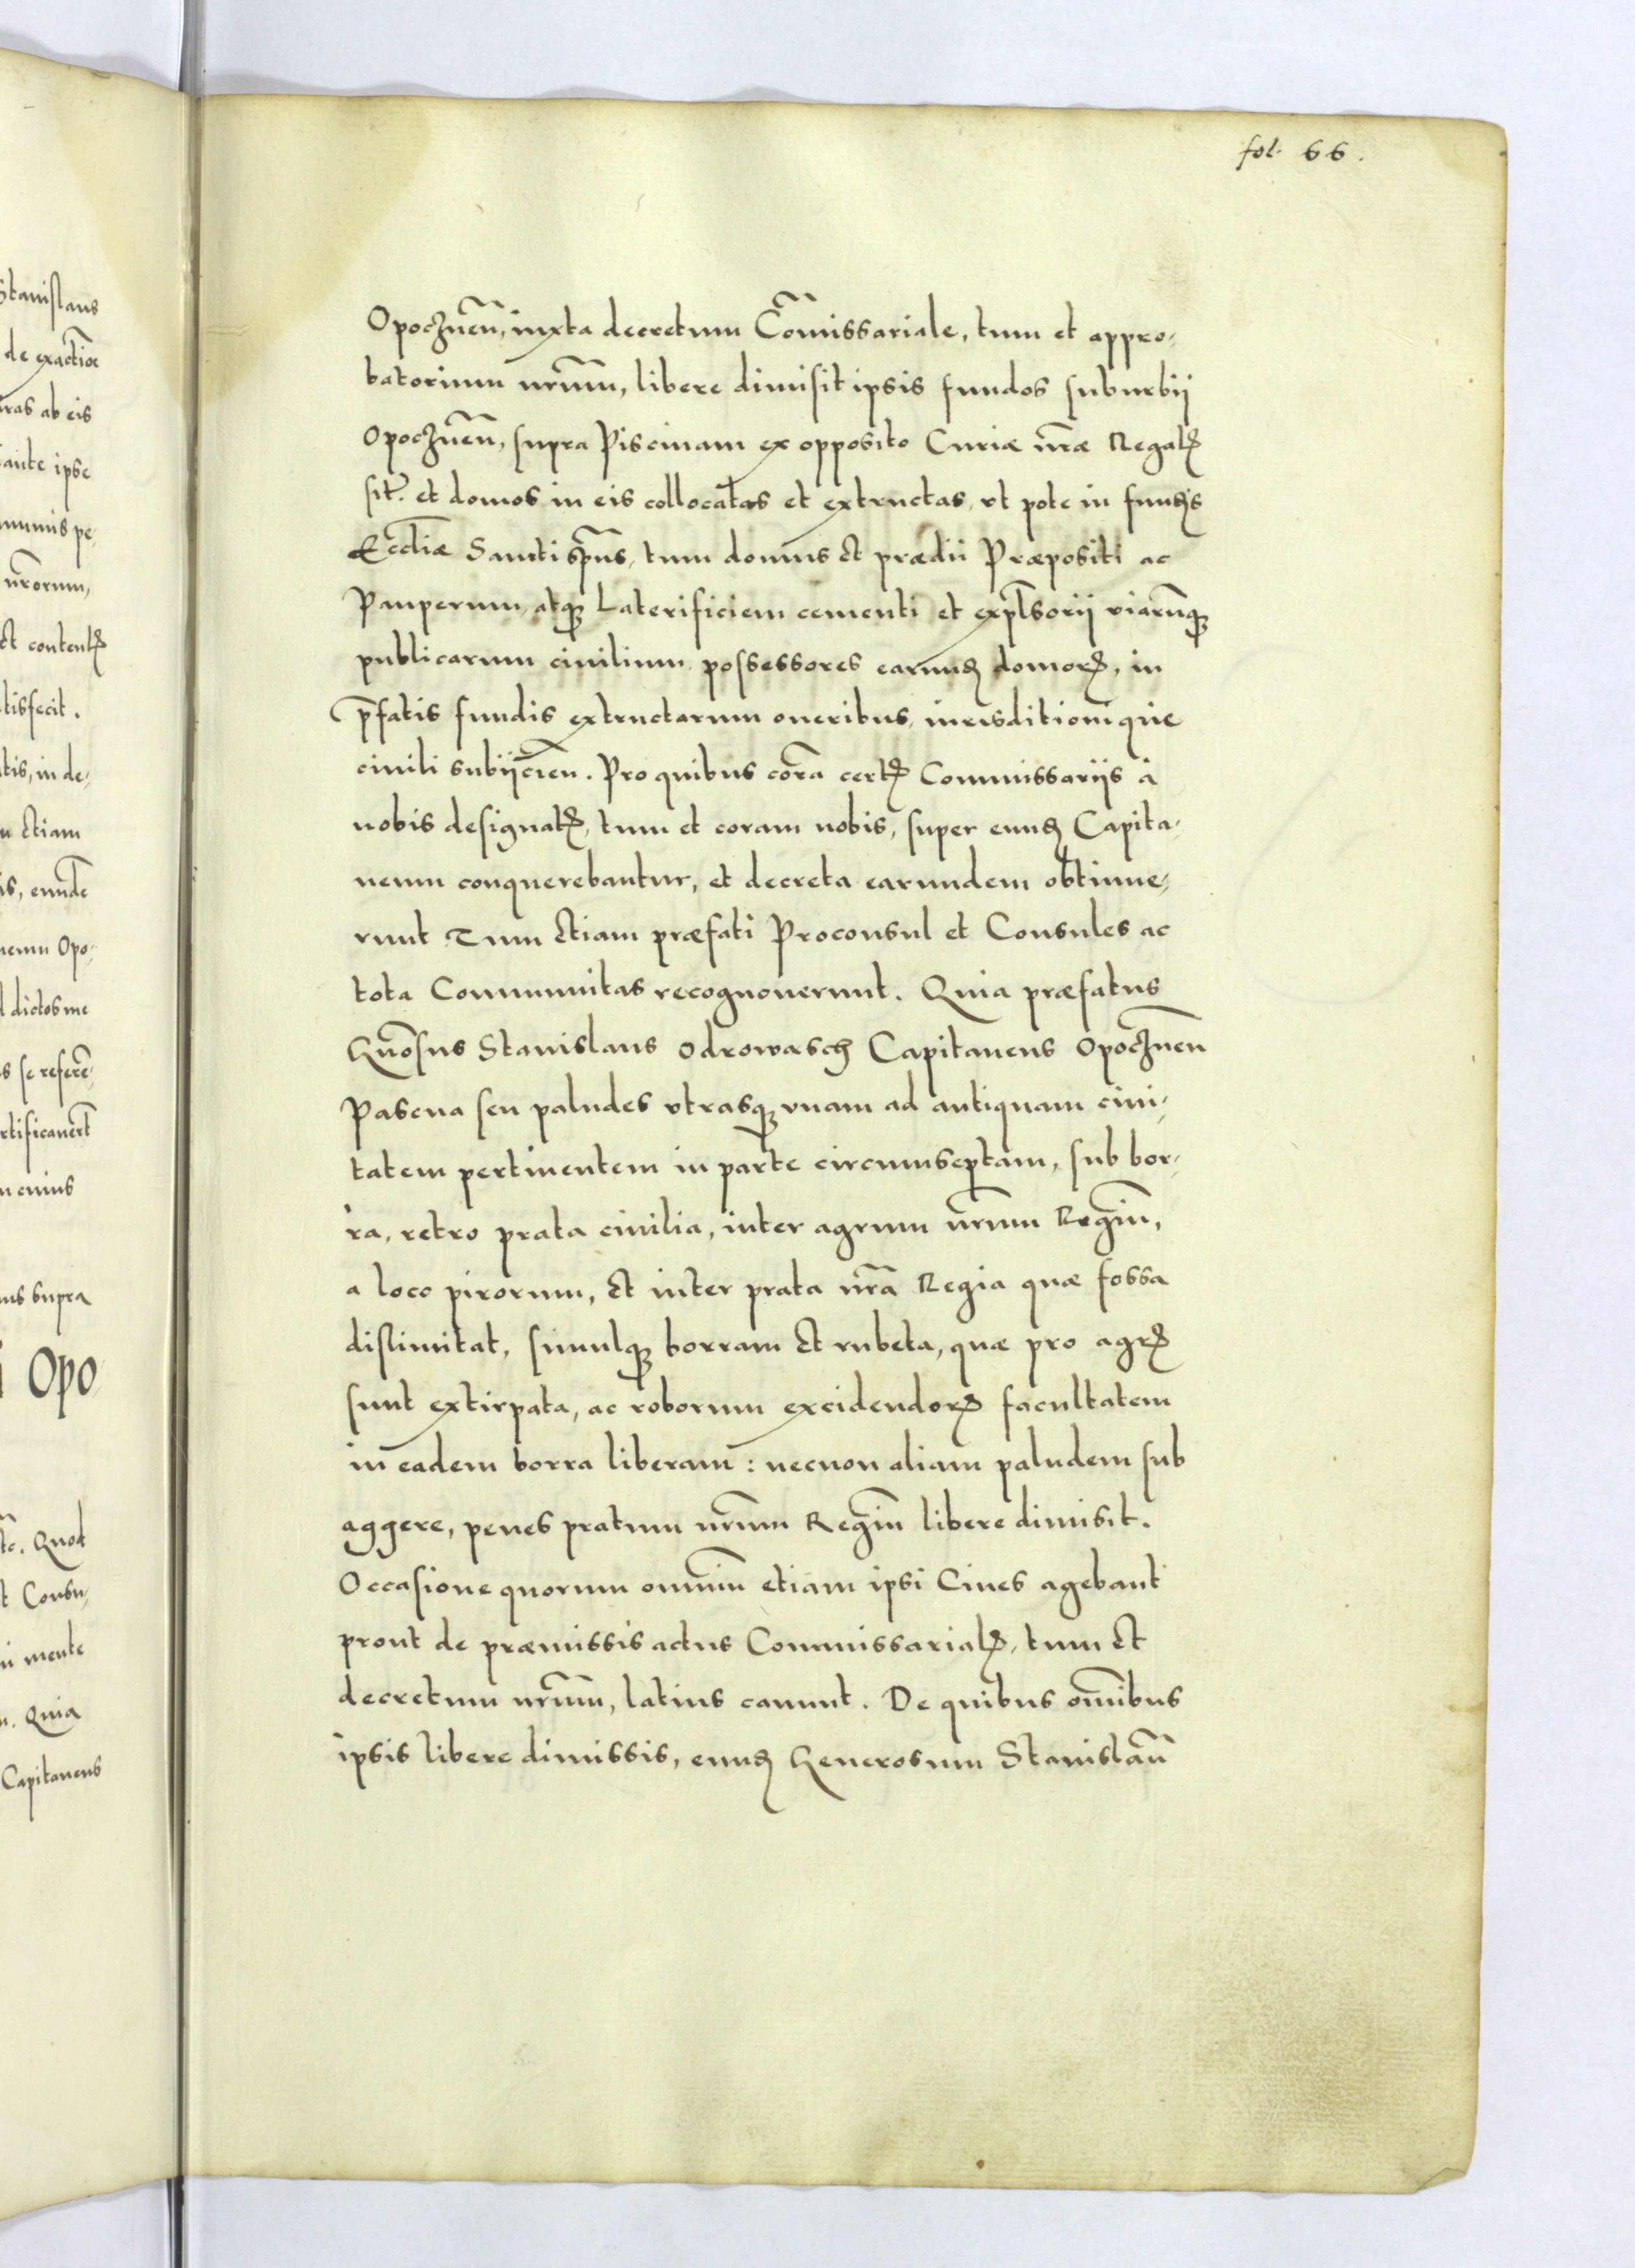 fol. 66.
Stanislaus
de exactiõe
uras ab eis
ante ipse
mmunis pe,
nrõrum,
et content
tisfecit.
tis, in de,
etiam
is, eund
neum Opo,
dictos me
s se referẽ,
rtificauert
cuius
ius supra
Opo
tc. Quod
t Consu,
ni mente
Quia
Capitaneus
Opocznẽn, iuxta decretum Cõmissariale, tum et appro,
batorium nrũm, libere dimisit ipsis fundos suburbij
Opocznẽn, supra Piscinam ex opposito Curiæ nr̃æ Regal
sit. et domos in eis collocatas et extructas, vt pote in fundis
Eccliæ Sancti spũs, tum domus et prædii Præpositi ac
Pauperum, atq Laterificiem cementi et explsorij viarũq
publicarum ciuilium possessores earund domor, in
p̃fatis fundis extructarum oneribus, iurisditioniqúe
ciuili subijcien. Pro quibus corã cert Commissarijs à
nobis designat, tum et coram nobis, super eund Capita,
neum conquerebantur, et decreta earundem obtinue,
runt Tum etiam præfati Proconsul et Consules ac
tota Communitas recognouerunt. Quia præfatus
Gñosus Stanislaus Odrowasch Capitaneus Opocznẽn
Pascua seu paludes vtrasq vnam ad antiquam ciui,
tatem pertinentem in parte circumseptam, sub bor,
ra, retro prata ciuilia, inter agrum nr̃um Regiũ,
a loco pirorum, et inter prata nrã Regia quæ fossa
dislimitat, simulq borram et rubeta, quæ pro agr
sunt extirpata, ac roborum excidendor facultatem
in eadem borra liberam: necnon aliam paludem sub
aggere, penes pratum nr̃um Regiũ libere dimisit.
Occasione quorum omniũ etiam ipsi Ciues agebant
prout de præmissis actus Commissarial, tum et
decretum nrũm, latius canunt. De quibus om̃ibus
ipsis libere dimissis, eund Generosum Stanislaũ